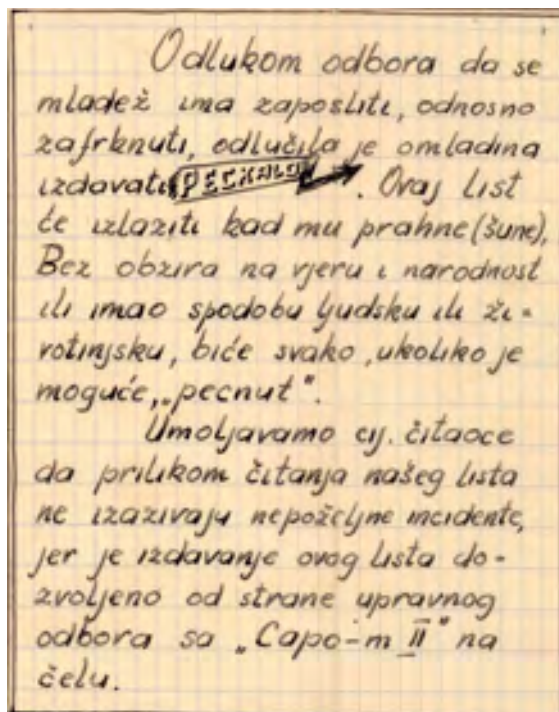 Odlukom odbora da se
mladež ima zaposliti, odnosno
zafrknuti, odlučila je omladina
izdavati PECKALO. Ovaj list
će izlaziti kad mu prahne (šune),
Bez obzira na vjeru i narodnost
ili imao spodobu ljudsku ili ži-
votinjsku, biće svako, ukoliko je
moguće, „pecnut".
Umoljavamo cij. čitaoce
da prilikom čitanja našeg lista
ne izazivaju nepoželjne incidente,
jer je izdavanje ovog lista do-
zvoljeno od strane upravnog
odbora sa „Capo-m II" na
čelu.